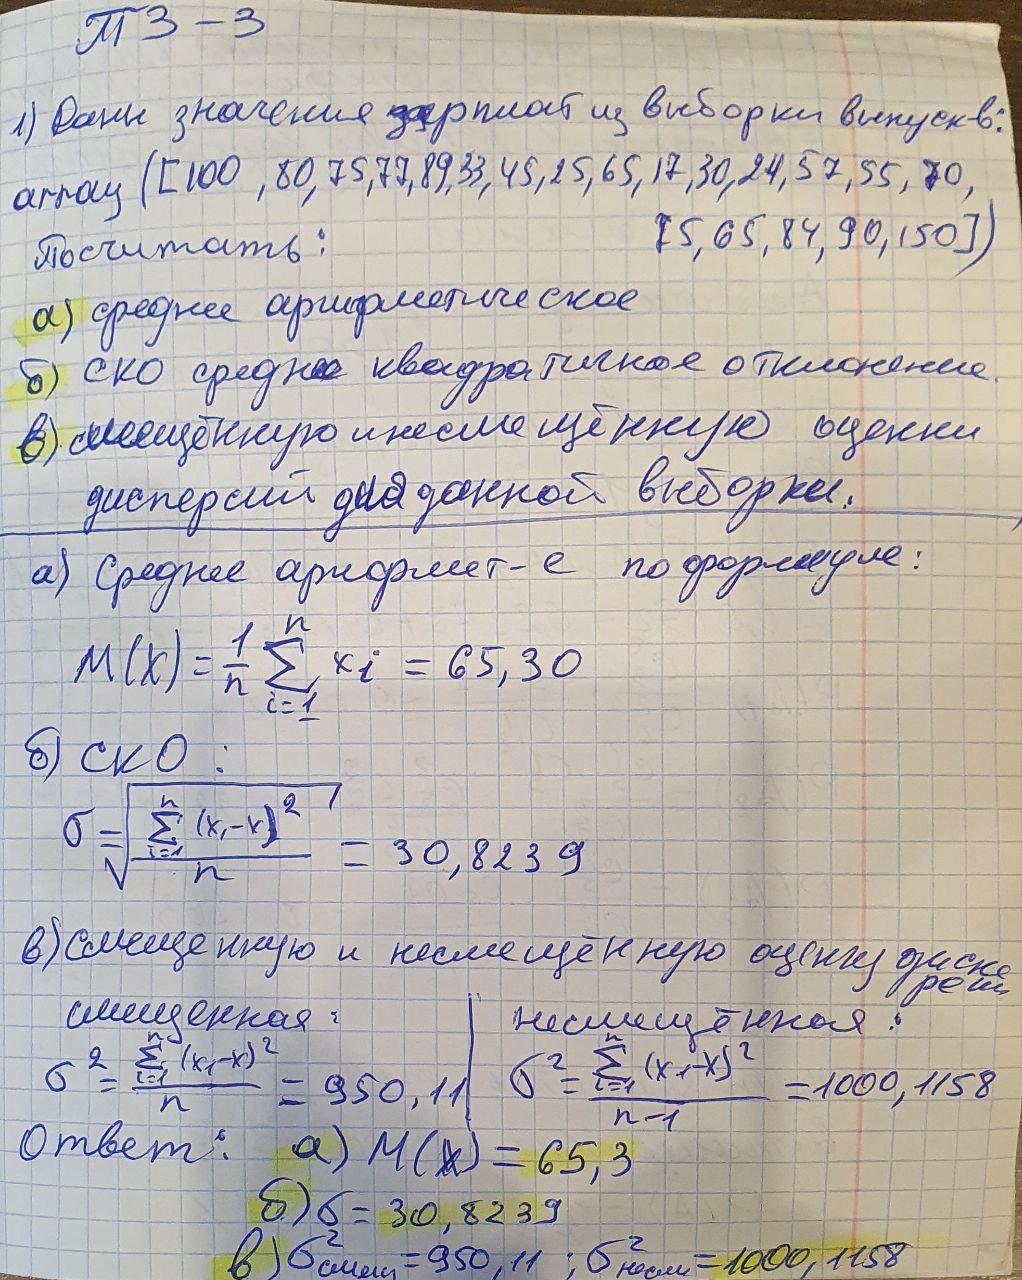 ПЗ-3
1) Даны значения зарплат из выборки выпускв:
array ([100, 80, 75, 77, 89, 33, 45, 25, 65, 17, 30, 24, 57, 55, 70,
75, 65, 84, 90, 150])
Посчитать:
а) среднее арифметическое
б) СКО среднее квадратичное отклонение.
в) смещённую и несмещённую оценки
дисперсий для данной выборки.
а) Среднее арифмет-е по формуле:
M(X) = 1/n ∑ⁿᵢ₌₁ xi = 65,30
б) СКО:
σ = √(∑ⁿᵢ₌₁ (x,-x)² / n) = 30,8239
в) смещенную и несмещённую оценку диспе
рсии
смещенная: | несмещённая:
σ² = ∑ⁿᵢ₌₁ (x,-x)² / n = 950,11 | σ² = ∑ⁿᵢ₌₁ (x,-x)² / n-1 = 1000,1158
Ответ: а) M(X) = 65,3
б) σ = 30,8239
в) σ² смещ = 950,11; σ² несм = 1000,1158